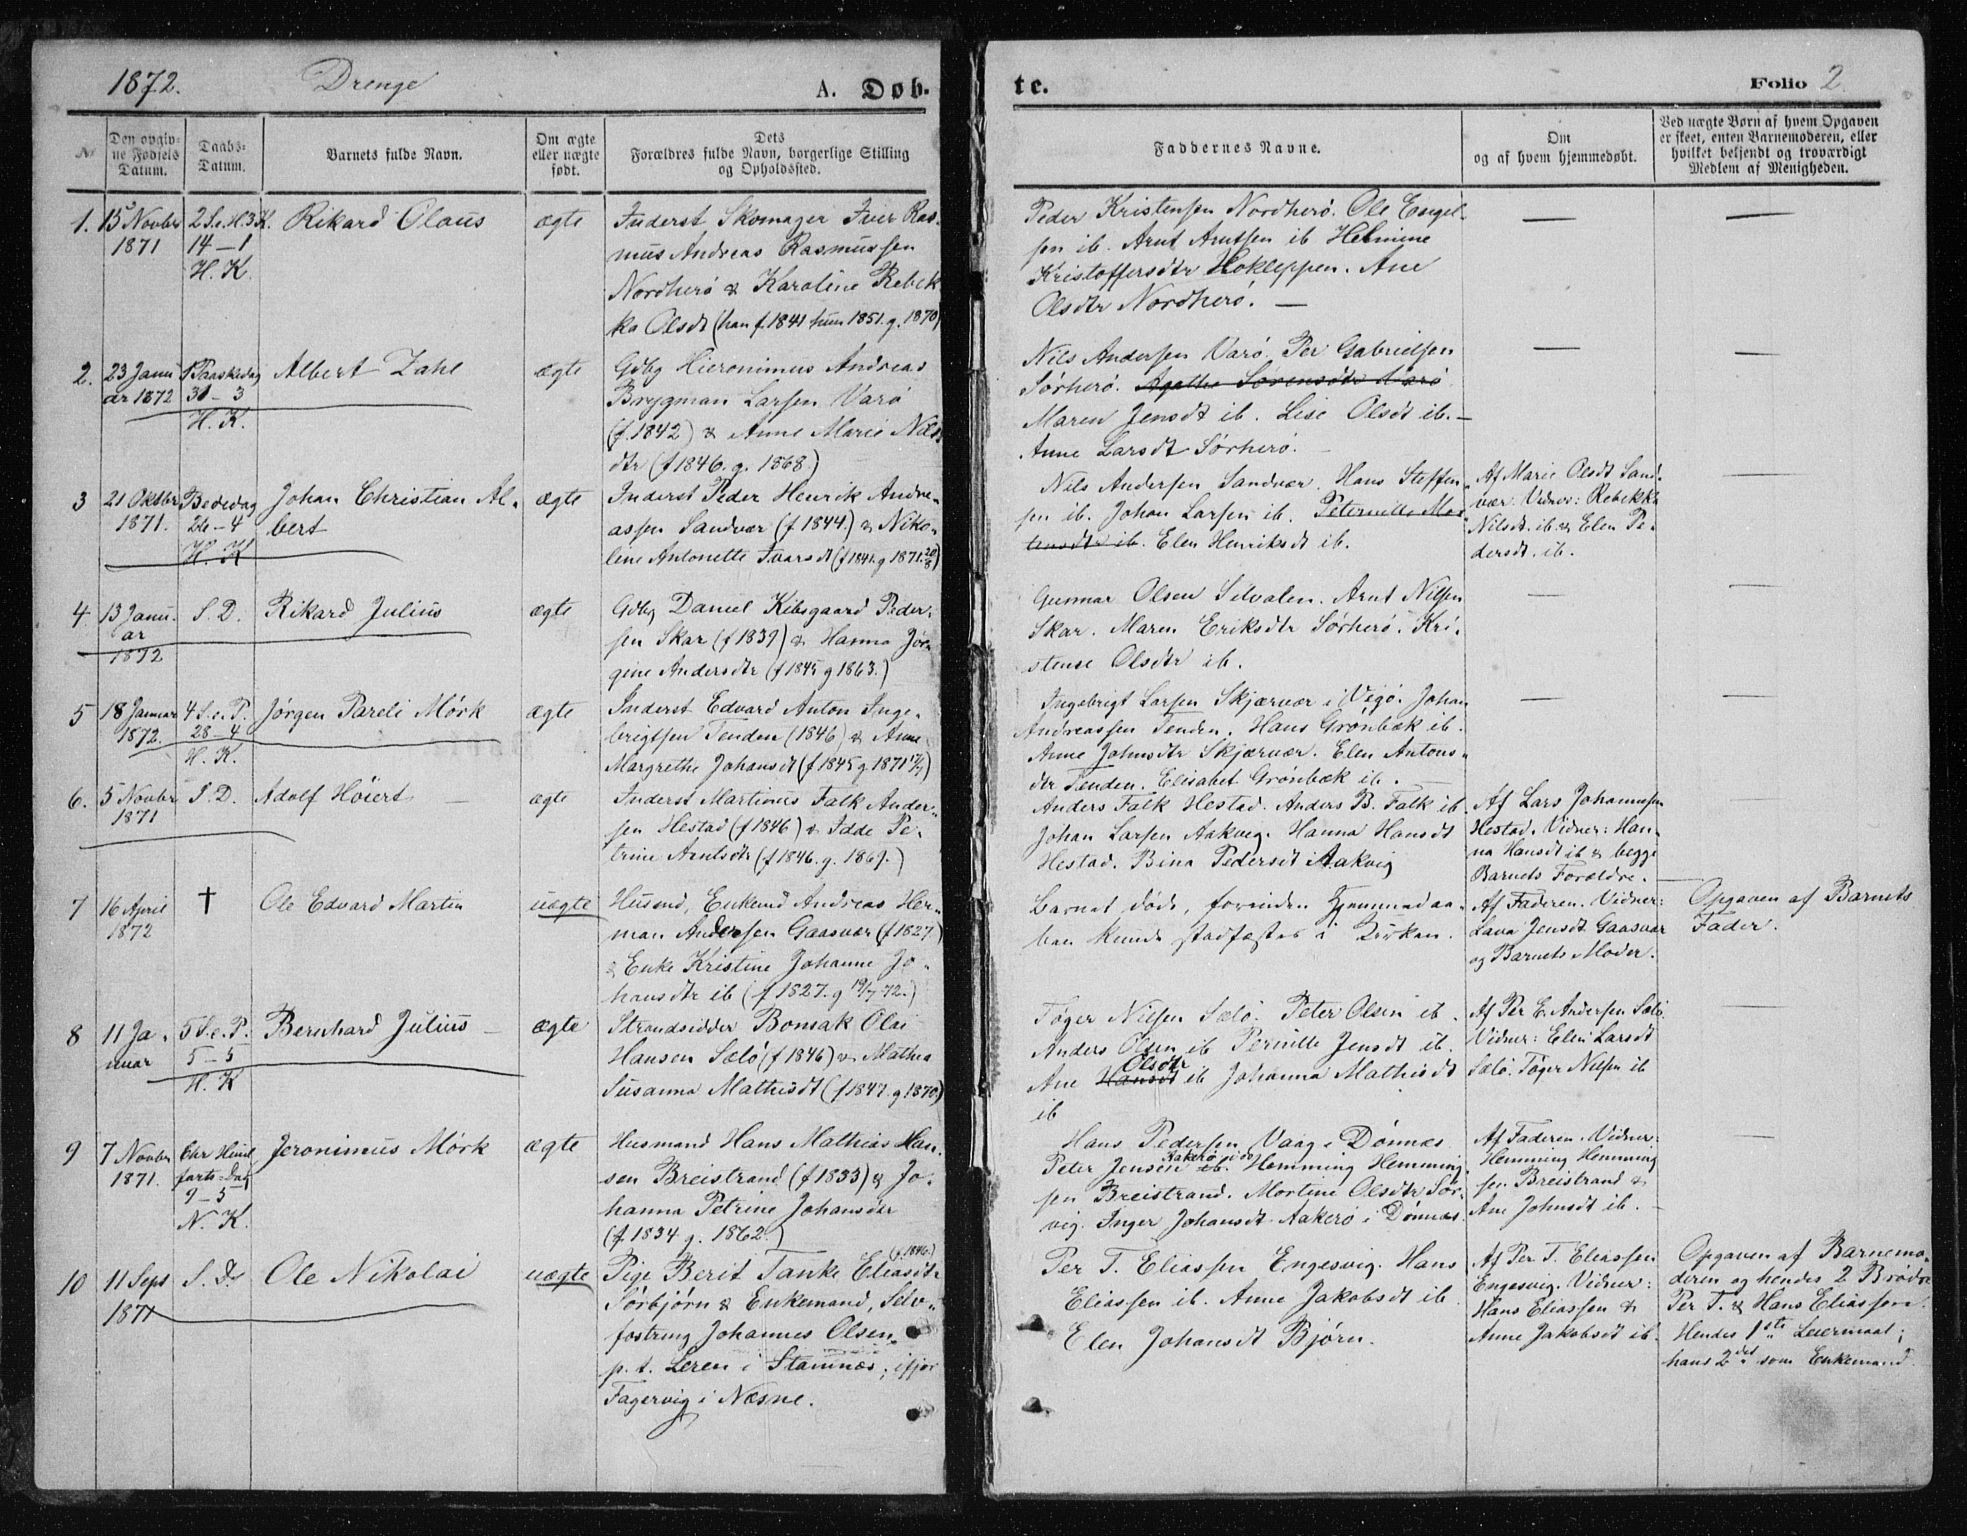 1872. Drenge A. Døb-
te. Folio 2.
No
Den opgiv-
ne Fødsels
Datum.
Daabs-
Datum.
Barnets fulde Navn.
Om ægte
eller uægte
født.
Dets
Forældres fulde Navn, borgerlige Stilling
og Opholdssted.
Faddernes Navne.
Om
og af hvem hjemmedøbt.
Ved uægte Børn af hvem Opgaven
er skeet, enten Barnemoderen, eller
hvilket bekjendt og troværdigt
Medlem af Menigheden.
1. 15 Novbr
1871
2 S. e. H. 3 K.
14-1
H. K.
Rikard Olaus
ægte
Inderst Skomager Iver Ras-
mus Andreas Rasmussen
Nordherö & Karoline Rebek
ka Olsdt (han f. 1841 hun 1851. g. 1870)
Peder Kristensen Nordherö. Ole Engel-
sen ib. Arnt Arntsen ib Helmine
Kristoffersdtr Hokleppen. Ane
Olsdtr Nordherö. —
—
—
2. 23 Janu
ar 1872
1 Paaskedag
31-3
H. K.
Albert Zahl
ægte
Gdbg Hieronimus Andreas
Brygman Larsen Varö
(f. 1842) & Anne Marie Nils
dtr (f 1846. g. 1868.)
Nils Andersen Varö. Per Gabrielsen
Sörherö. Agathe Sörensdtr Varö
Maren Jensdt ib. Lise Olsdt ib. —
Anne Larsdt Sörherö.
—
—
3 21 Oktbr
1871.
Bededag
26-4
H. K
Johan Christian Al-
bert
ægte
Inderst Peder Henrik Andre-
assen Sandvær (f 1844.) & Niko-
line Antonette Ivarsdt (f 1841. g 1871. 20/8)
Nils Andersen Sandvær. Hans Steffen
sen ib. Johan Larsen ib. Peternille Mor
tensdt ib. Elen Henriksdt ib.
Af Marie Olsdt Sand
vær. Vidner: Rebekka
Nilsdt. ib. & Elen Pe-
dersdt. ib.
—
4 13 Janu-
ar
1872
S. D.
Rikard Julius
ægte
Gdbg Daniel Kibsgaard Peder-
sen Skar (f 1839) & Hanna Jör-
gine Andersdtr (f 1845 g 1863.)
Gunnar Olsen Silvalen. Arnt Nilsen
Skar. Maren Eriksdtr Sörherö. Kri-
stense Olsdtr ib.
—
—
5 18 Januar
1872.
4 S. e. P.
28-4
H. K.
Jørgen Pareli Mörk
ægte
Inderst Edvard Anton Inge-
brigtsen Tenden (1846) & Anne
Margrethe Johansdt (f 1845 g 1871)
Ingebrigt Larsen Skjærvær i Vegö. Johan
Andreassen Tenden. Hans Grönbæk ib.
Anne Johnsdtr Skjærvær. Elen Antons-
dtr Tenden. Elisabet Grönbæk ib.
—
—
6. 5 Novbr
1871
S. D.
Adolf Höiert —
ægte
Inderst Martinus Falk Ander-
sen Hestad (f 1846) & Idde Pe-
trine Arntsdtr (f 1846. g. 1869.)
Anders Falk Hestad. Anders B. Falk ib.
Johan Larsen Aakvig. Hanna Hansdt
Hestad. Bina Pedersdt Aakvig
Af Lars Johannesen
Hestad. Vidner: Han-
na Hansdt ib & begge
Barnets Forældre.
—
7 16 April
1872
†
Ole Edvard Martin
uægte
Husmd, Enkemd Andreas Her-
man Andersen Gaasvær (f 1827)
& Enke Kristine Johanne Jo-
hansdtr ib (f 1827. g 19/7 72.)
Barnet döde, forinden Hjemmedaa-
ben kunde stadfæstes i Kirken.
Af Faderen. Vidner:
Lava Jensdt Gaasvær
og Barnets Moder.
Opgaven af Barnets
Fader.
8 11 Ja-
nuar
5 S. e. P.
5-5
H. K
Bernhard Julius —
ægte
Strandsidder Bonsak Olai
Hansen Salö (f 1846) & Mathea
Susanna Mathisdt (f 1847. g 1870.)
Töger Nilsen Salö. Peter Olsen ib.
Anders Olsen ib Pernille Jensdt ib.
Ane Hansdt Olsdtr ib Johanna Mathisdt
ib
Af Per E. Andersen Salö.
Vidner: Elen Larsdt
Salö. Töger Nilsen ib
—
9 7 Novbr
1871.
Chr Himl
farts-Dag
9-5
N. K.
Jeronimus Mörk
ægte
Husmand Hans Mathias Han-
sen Breistrand (f 1833) & Jo-
hanna Petrine Johansdtr
(f. 1834 g. 1862.)
Hans Pedersen Vaag i Dönnæs
Peter Jensen ib. Aakerö i do Hemming Hemming
sen Breistrand. Mortine Olsdtr Sör-
vig. Inger Johansdt Aakerö i Dönnæs.
Af Faderen. Vidner:
Hemming Hemming
sen Breistrand &
Ane Johnsdt ib. —
—
10 11 Sept
1871
S. D.
Ole Nikolai
uægte
Pige Berit Tanke Eliasdtr (f. 1846.)
Sörbjörn & Enkemand, Selv-
fostring Johannes Olsen
p. t. Leren i Stamnæs, ifjor
Fagervig i Næsne.
Per T. Eliassen Engesvig. Hans
Eliassen ib. Anne Jakobsdt ib
Elen Johansdt Bjørn.
Af Per T. Eliassen
Engesvig. Vidner:
Hans Eliassen &
Anne Jakobsdt ib.
Opgaven af Barnemo-
deren og hendes 2 Brødre
Per T. & Hans Eliassen.
Hendes 1ste Leiermaal;
hans 2det som Enkemand.